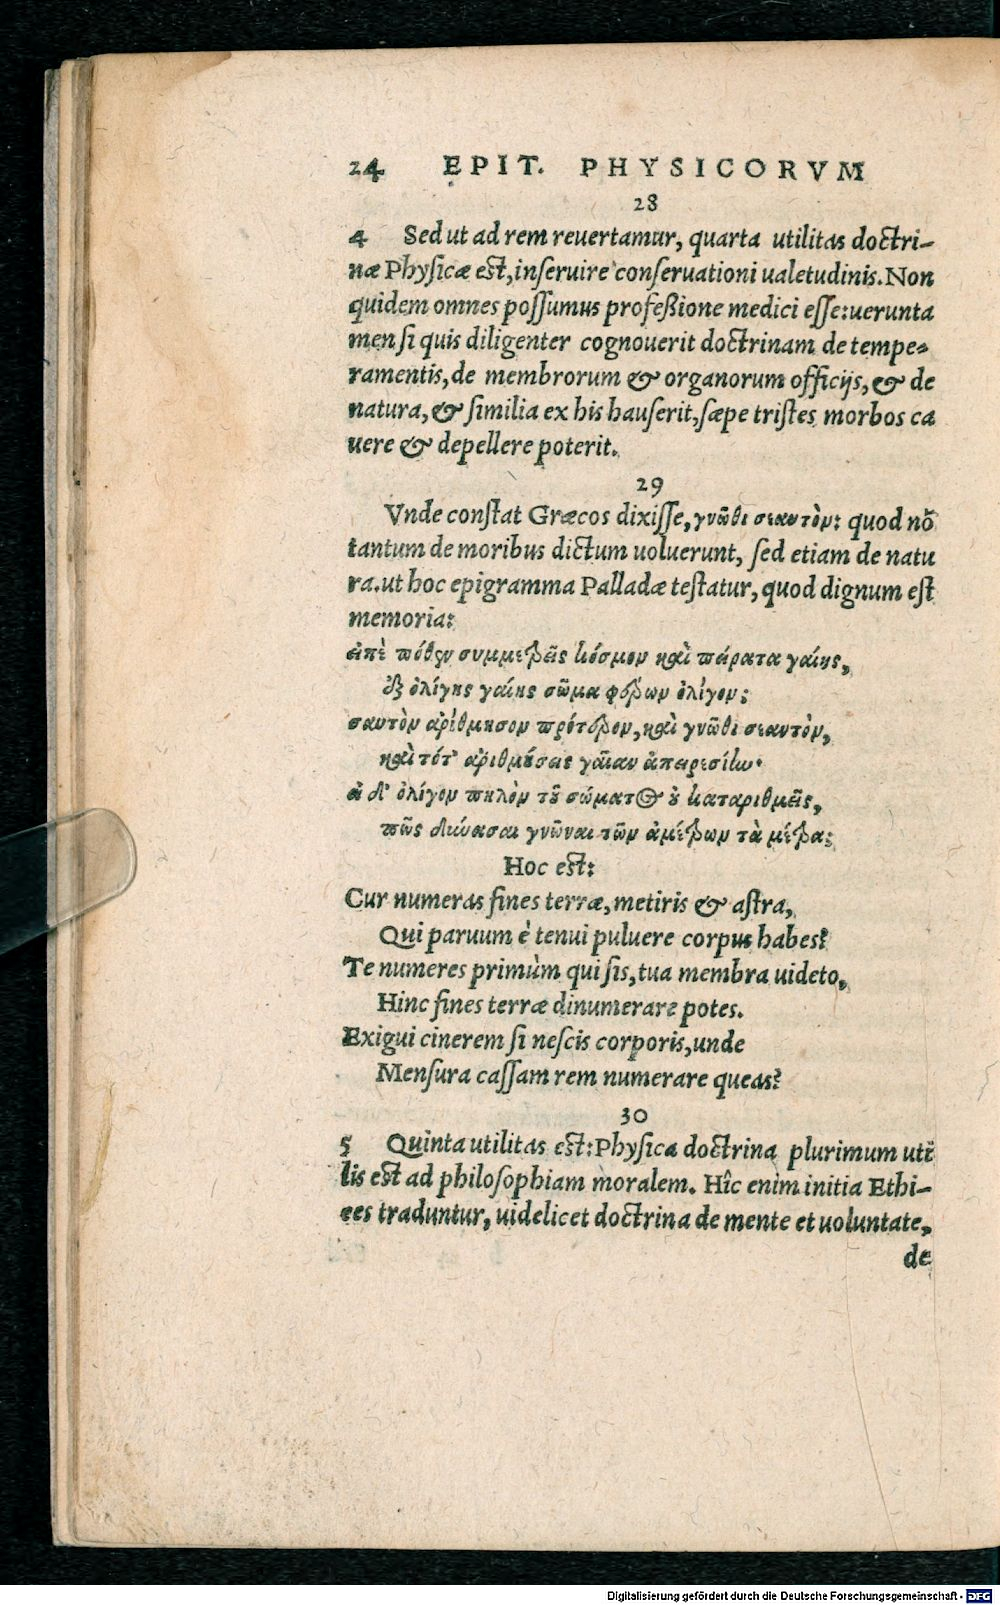 24 EPIT. PHYSICORVM
28
4 Sed ut ad rem reuertamur, quarta utilitas doctri-
næ Physicæ est, inseruire conseruationi ualetudinis. Non
quidem omnes possumus professione medici esse: uerunta
men si quis diligenter cognouerit doctrinam de tempe-
ramentis, de membrorum & organorum officijs, & de
natura, & similia ex his hauserit, sæpe tristes morbos ca
uere & depellere poterit.
29
Vnde constat Græcos dixisse, γνῶθι σεαυτὸν: quod nō
tantum de moribus dictum uoluerunt, sed etiam de natu
ra. ut hoc epigramma Palladæ testatur, quod dignum est
memoria:
εἰπὲ πόθεν συμμετρεῖς κόσμον καὶ πείρατα γαίης,
ἐξ ὀλίγης γαίης σῶμα φέρων ὀλίγον;
σαυτὸν ἀρίθμησον πρότερον, καὶ γνῶθι σεαυτὸν,
καὶ τότ' ἀριθμήσεις γαῖαν ἀπειρεσίην.
εἰ δ' ὀλίγον πηλὸν τοῦ σώματος οὐ καταριθμεῖς,
πῶς δύνασαι γνῶναι τῶν ἀμέτρων τὰ μέτρα;
Hoc est:
Cur numeras fines terræ, metiris & astra,
Qui paruum è tenui puluere corpus habes?
Te numeres primùm qui sis, tua membra uideto,
Hinc fines terræ dinumerare potes.
Exigui cinerem si nescis corporis, unde
Mensura cassam rem numerare queas?
30
5 Quinta utilitas est: Physica doctrina plurimum uti
lis est ad philosophiam moralem. Hîc enim initia Ethi-
ces traduntur, uidelicet doctrina de mente et uoluntate,
de
Digitalisierung gefördert durch die Deutsche Forschungsgemeinschaft - DFG